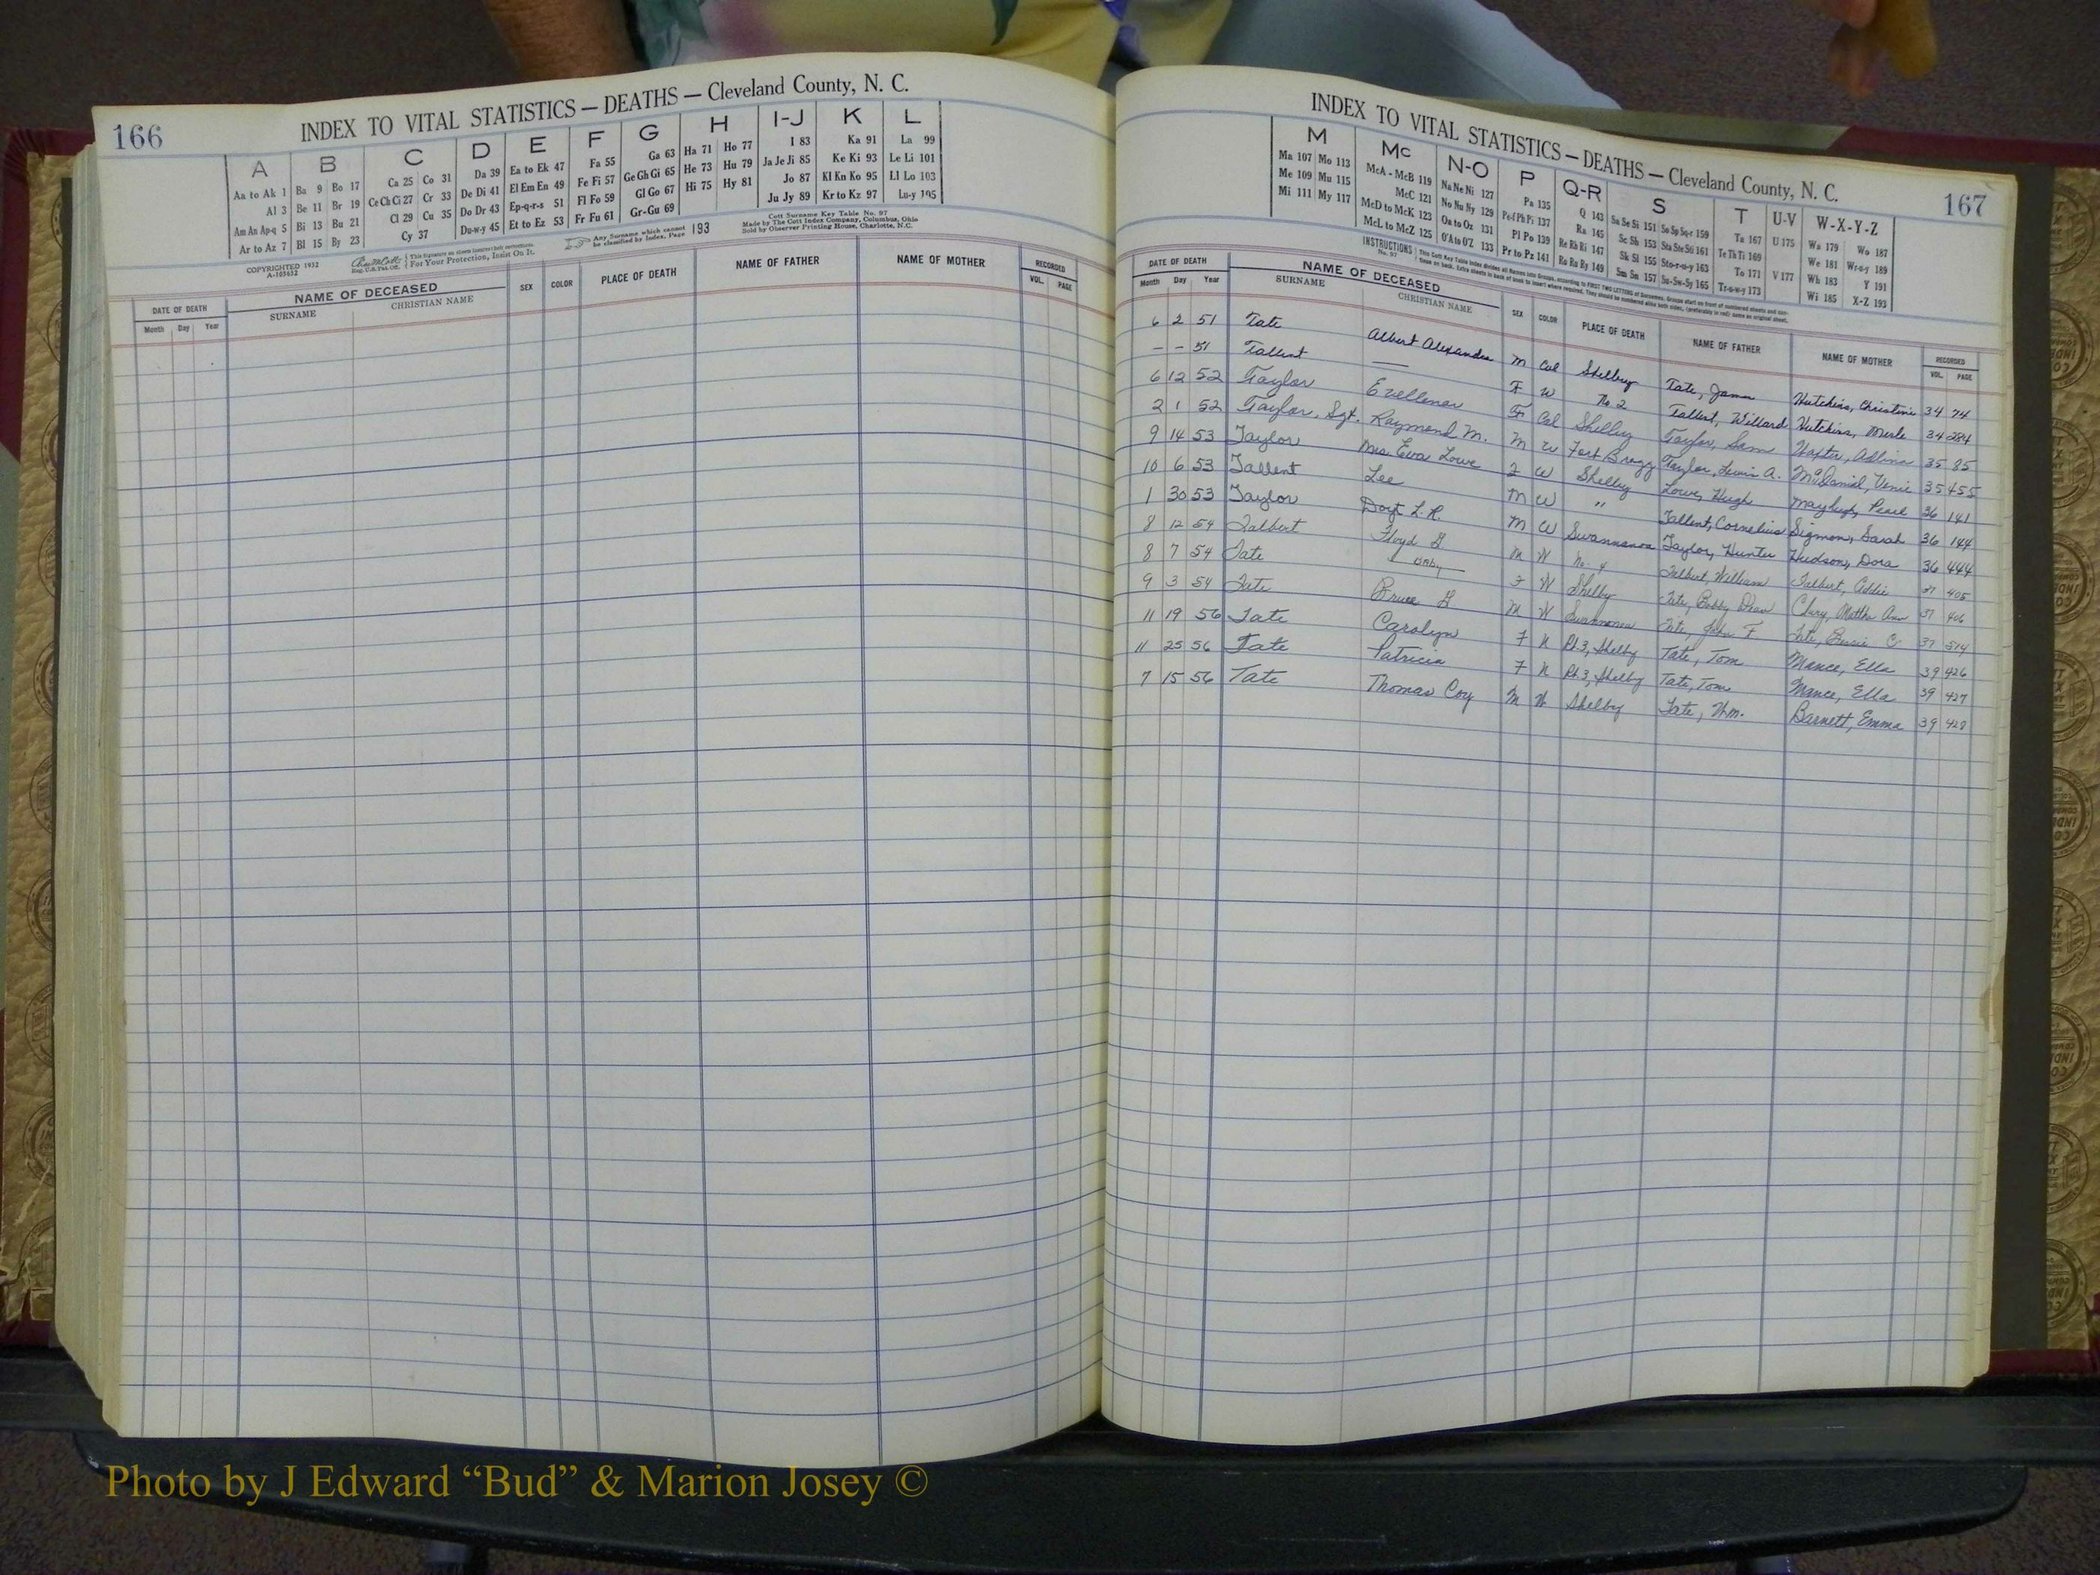 166
INDEX TO VITAL STATISTICS — DEATHS — Cleveland County, N. C.
A B C D E F G H I-J K L
Aa to Ak 1 Ba 9 Bo 17 Ca 25 Co 31 Da 39 Ea to Ek 47 Fa 55 Ga 63 Ha 71 Ho 77 I 83 Ka 91 La 99
Al 3 Be 11 Br 19 Ce Ch Ci 27 Cr 33 De Di 41 El Em En 49 Fe Fi 57 Ge Gh Gi 65 He 73 Hu 79 Ja Je Ji 85 Ke Ki 93 Le Li 101
Am An Ap-q 5 Bi 13 Bu 21 Cl 29 Cu 35 Do Dr 43 Ep-q-r-s 51 Fl Fo 59 Gl Go 67 Hi 75 Hy 81 Jo 87 Kl Kn Ko 95 Ll Lo 103
Ar to Az 7 Bl 15 By 23 Cy 37 Du-w-y 45 Et to Ez 53 Fr Fu 61 Gr-Gu 69 Ju Jy 89 Kr to Kz 97 Lu-y 105
COPYRIGHTED 1932
A-105652
For Your Protection, Insist On It.
Any Surname which cannot be classified by Index, Page 193
Cott Surname Key Table No. 97
Made by The Cott Index Company, Columbus, Ohio
Sold by Observer Printing House, Charlotte, N.C.
DATE OF DEATH NAME OF DECEASED SEX COLOR PLACE OF DEATH NAME OF FATHER NAME OF MOTHER RECORDED
Month Day Year SURNAME CHRISTIAN NAME VOL. PAGE
INDEX TO VITAL STATISTICS — DEATHS — Cleveland County, N. C.
167
M Mc N-O P Q-R S T U-V W-X-Y-Z
Ma 107 Mo 113 McA - McB 119 Na Ne Ni 127 Pa 135 Q 143 Sa Se Si 151 So Sp Sq-r 159 Ta 167 U 175 Wa 179 Wo 187
Me 109 Mu 115 McC 121 No Nu Ny 129 Pe-f Ph Pi 137 Ra 145 Sc Sh 153 Sta Ste Sti 161 Te Th Ti 169 We 181 Wr-u-y 189
Mi 111 My 117 McD to McK 123 Oa to Oz 131 Pl Po 139 Re Rh Ri 147 Sk Sl 155 Sto-r-u-y 163 To 171 V 177 Wh 183 Y 191
McL to McZ 125 O'A to O'Z 133 Pr to Pz 141 Ro Ru Ry 149 Sm Sn 157 Su-Sw-Sy 165 Tr-u-w-y 173 Wi 185 X-Z 193
INSTRUCTIONS No. 97
DATE OF DEATH NAME OF DECEASED SEX COLOR PLACE OF DEATH NAME OF FATHER NAME OF MOTHER RECORDED
Month Day Year SURNAME CHRISTIAN NAME VOL. PAGE
6 2 51 Tate Albert Alexander M Col Shelby Tate, James Hutchins, Christine 34 74
— — 51 Tallent — F W No. 2 Tallent, Willard Hutchins, Merle 34 284
6 12 52 Taylor Ezellener F Col Shelby Taylor, Sam 35 85
2 1 52 Taylor, Sgt. Raymond M. M W Fort Bragg Taylor, Lewis A. McDaniel, Venie 35 455
9 14 53 Taylor Mrs. Eva Lowe F W Shelby Lowe, Hugh Mayhugh, Pearl 36 141
10 6 53 Tallent Lee M W " Tallent, Cornelius Sigmon, Sarah 36 144
1 30 53 Taylor Doyt L. R. M W Swannanoa Taylor, Hunter Hudson, Dora 36 444
8 12 54 Talbert Floyd G. M W No. 4 Talbert, William Talbert, Addie 37 405
8 7 54 Tate Baby F W Shelby Tate, Bobby Dean Clary, Martha Ann 37 406
9 3 54 Tate Bruce G M W Swannanoa Tate, John F Tate, Bessie C. 37 574
11 19 56 Tate Carolyn F N Rt. 3, Shelby Tate, Tom Mance, Ella 39 426
11 25 56 Tate Patricia F N Rt. 3, Shelby Tate, Tom Mance, Ella 39 427
7 15 56 Tate Thomas Coy M W Shelby Tate, Wm. Barnett, Emma 39 428
Photo by J Edward “Bud” & Marion Josey ©